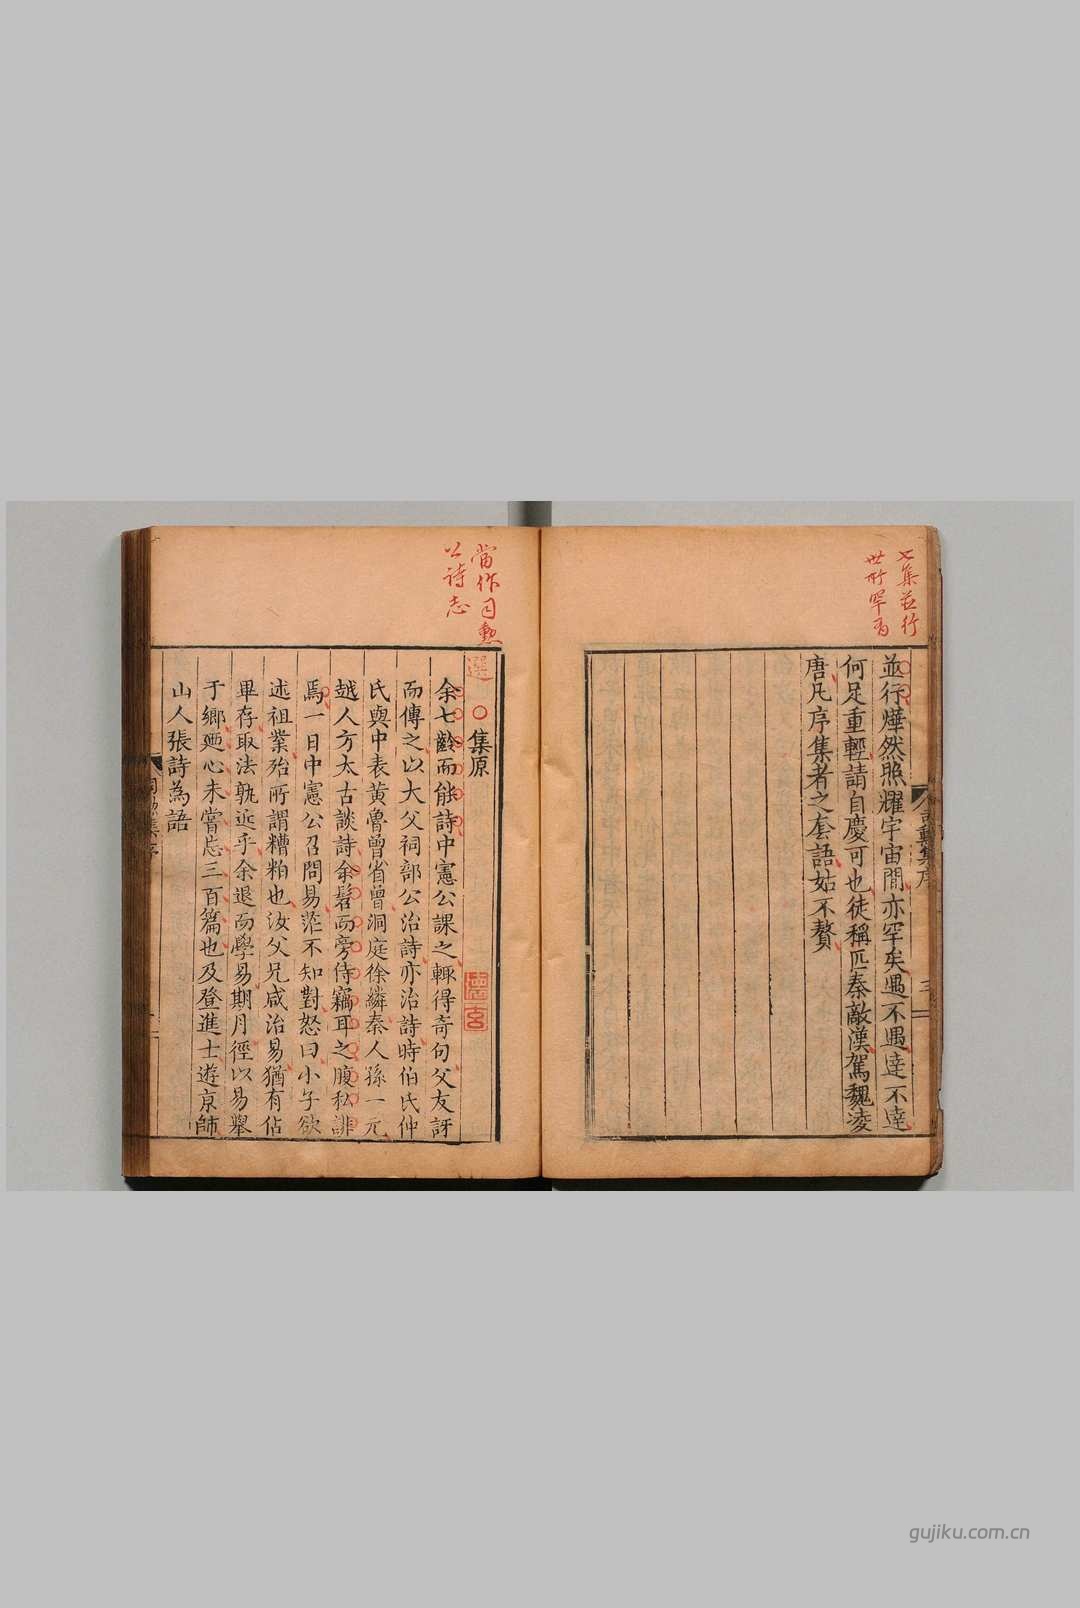 七集並行
世所罕有
並行燁然照耀宇宙間亦罕矣遇不遇達不達
何足重輕請自慶可也徒稱匹秦敵漢駕魏凌
唐凡序集者之套語姑不贅
集序
三
當作司勳
公詩志
選
集原
余七齡而能詩中憲公課之輒得奇句父友訝
而傳之以大父祠部公治詩亦治詩時伯氏仲
氏與中表黃魯曾省曾洞庭徐縉秦人孫一元
越人方太古談詩余髫而旁侍竊耳之腹私誹
焉一日中憲公召問易茫不知對怒曰小子欲
述祖業殆所謂糟粕也汝父兄咸治易猶有佔
畢存取法孰近乎余退而學易期月徑以易舉
于鄉廼心未嘗忘三百篇也及登進士遊京師
山人張詩為語
gujiku.com.cn